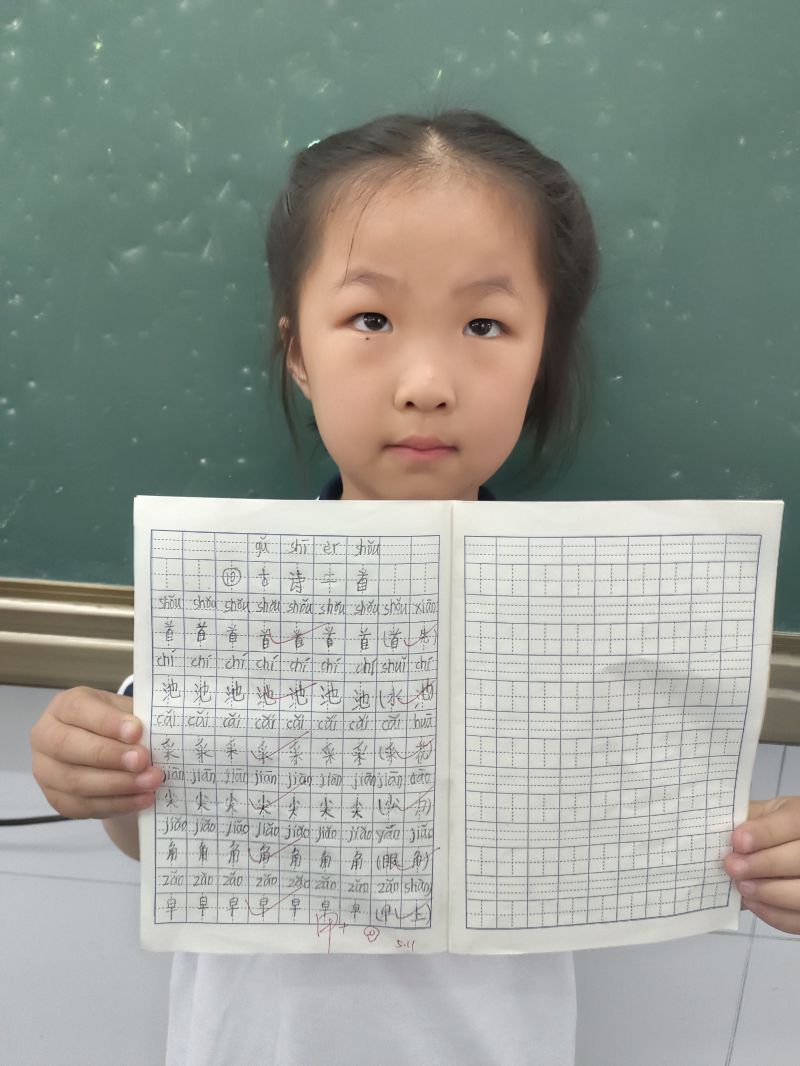 gǔ shī èr shǒu
⑩ 古 诗 二 首
shǒu shǒu shǒu shǒu shǒu shǒu shǒu shǒu xiān
首 首 首 首 首 首 首 (首 先)
chí chí chí chí chí chí chí shuǐ chí
池 池 池 池 池 池 池 (水 池)
cǎi cǎi cǎi cǎi cǎi cǎi cǎi cǎi huā
采 采 采 采 采 采 采 (采 花)
jiān jiān jiān jiān jiān jiān jiān jiān dāo
尖 尖 尖 尖 尖 尖 尖 (尖 刀)
jiǎo jiǎo jiǎo jiǎo jiǎo jiǎo jiǎo yǎn jiǎo
角 角 角 角 角 角 角 (眼 角)
zǎo zǎo zǎo zǎo zǎo zǎo zǎo zǎo shàng
早 早 早 早 早 早 早 (早 上)
甲+
5.11